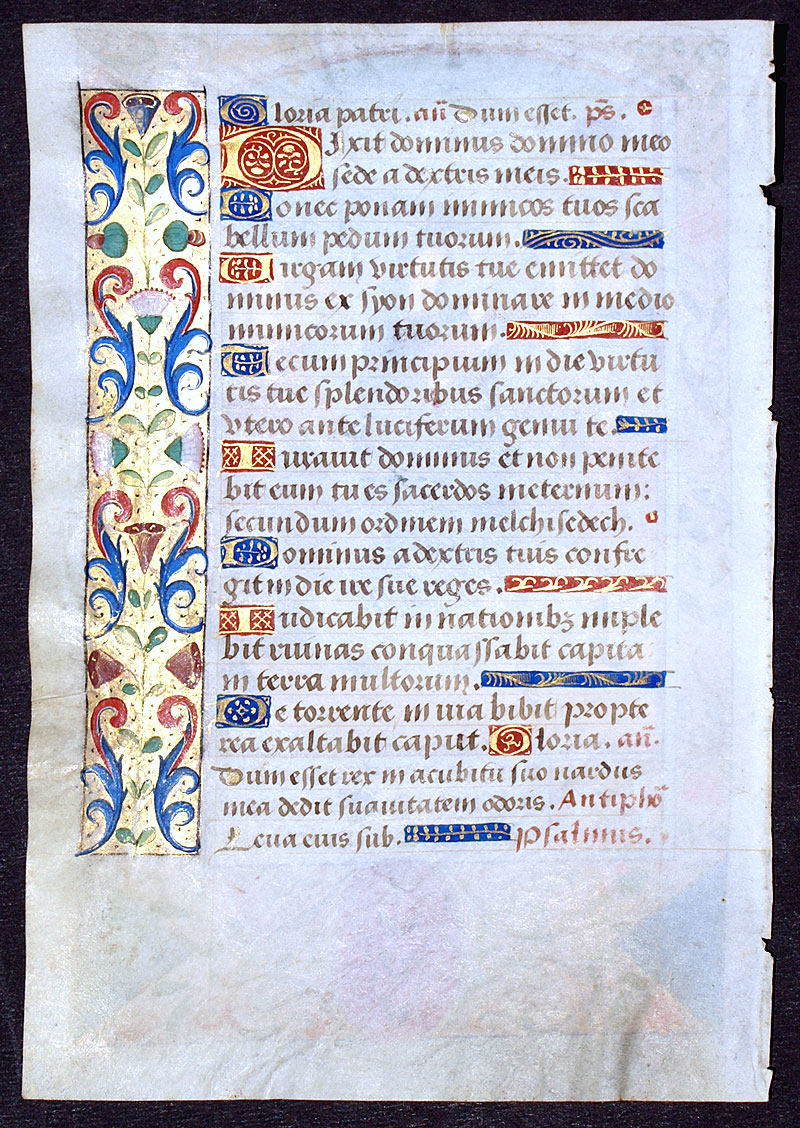 Gloria patri. añ Dum esset. ps̄.
Dixit dominus domino meo
sede a dextris meis.
Donec ponam inimicos tuos sca
bellum pedum tuorum.
Uirgam virtutis tue emittet do
minus ex syon dominare in medio
inimicorum tuorum.
Tecum principium in die virtu
tis tue splendoribus sanctorum et
vtero ante luciferum genui te.
Iurauit dominus et non penite
bit eum tu es sacerdos ineternum:
secundum ordinem melchisedech.
Dominus a dextris tuis confre
git in die ire sue reges.
Iudicabit in nationibꝫ imple
bit ruinas conquassabit capita
in terra multorum.
De torrente in uia bibit propte
rea exaltabit caput. Gloria. añ.
Dum esset rex in acubitu suo nardus
mea dedit suauitatem odoris. Antiphõ
Leua eius sub. Psalmus.